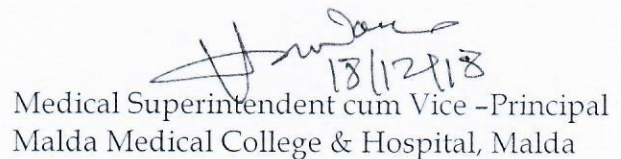 18/12/18
Medical Superintendent cum Vice –Principal
Malda Medical College & Hospital, Malda